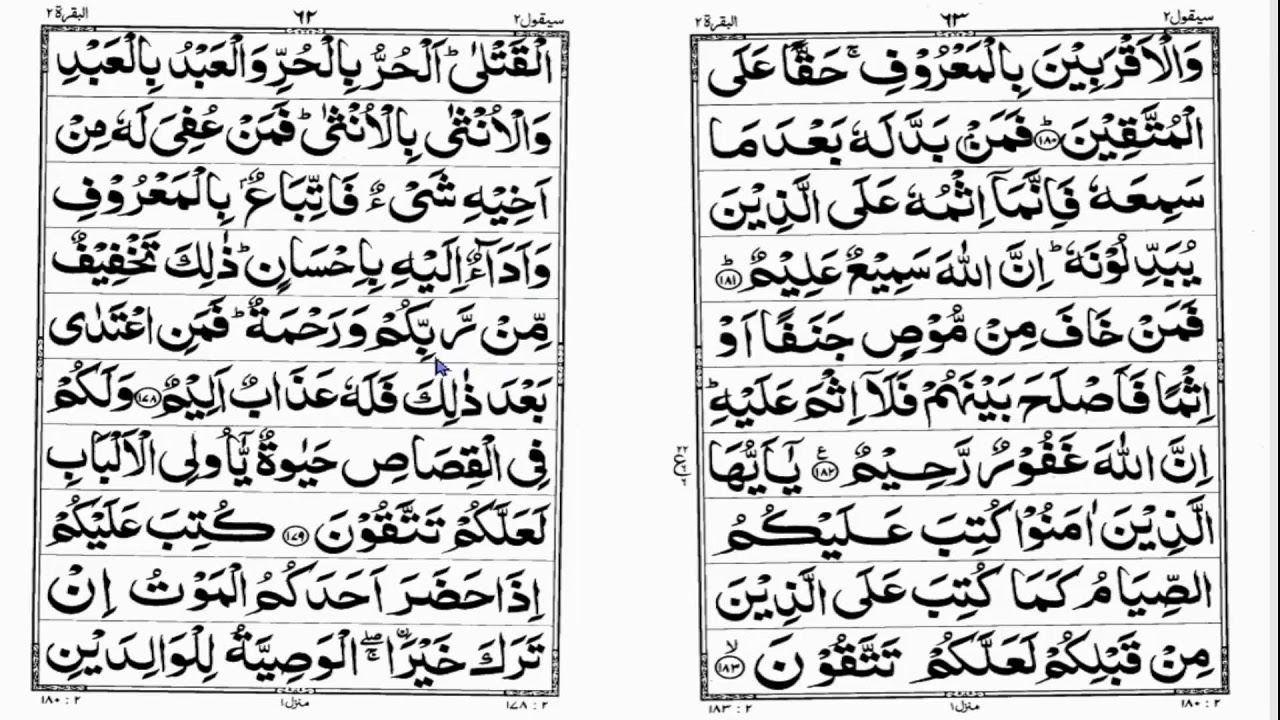 سيقول ٢ ٦٢ البقرة ٢
الْقَتْلٰىؕ اَلْحُرُّ بِالْحُرِّ وَالْعَبْدُ بِالْعَبْدِ
وَالْاُنْثٰى بِالْاُنْثٰىؕ فَمَنْ عُفِىَ لَهٗ مِنْ
اَخِيْهِ شَىْءٌ فَاتِّبَاعٌۢ بِالْمَعْرُوْفِ
وَاَدَآءٌ اِلَيْهِ بِاِحْسَانٍؕ ذٰلِكَ تَخْفِيْفٌ
مِّنْ رَّبِّكُمْ وَرَحْمَةٌؕ فَمَنِ اعْتَدٰى
بَعْدَ ذٰلِكَ فَلَهٗ عَذَابٌ اَلِيْمٌ ۝١٧٨ وَلَكُمْ
فِى الْقِصَاصِ حَيٰوةٌ يّٰۤاُولِى الْاَلْبَابِ
لَعَلَّكُمْ تَتَّقُوْنَ ۝١٧٩ كُتِبَ عَلَيْكُمْ
اِذَا حَضَرَ اَحَدَكُمُ الْمَوْتُ اِنْ
تَرَكَ خَيْرَاۖۚ ۨالْوَصِيَّةُ لِلْوَالِدَيْنِ
١٧٨ : ٢ منزل١ ١٨٠ : ٢
سيقول ٢ ٦٣ البقرة ٢
وَالْاَقْرَبِيْنَ بِالْمَعْرُوْفِۚ حَقًّا عَلَى
الْمُتَّقِيْنَؕ ۝١٨٠ فَمَنْۢ بَدَّلَهٗ بَعْدَ مَا
سَمِعَهٗ فَاِنَّمَاۤ اِثْمُهٗ عَلَى الَّذِيْنَ
يُبَدِّلُوْنَهٗؕ اِنَّ اللّٰهَ سَمِيْعٌ عَلِيْمٌؕ ۝١٨١
فَمَنْ خَافَ مِنْ مُّوْصٍ جَنَفًا اَوْ
اِثْمًا فَاَصْلَحَ بَيْنَهُمْ فَلَاۤ اِثْمَ عَلَيْهِؕ
اِنَّ اللّٰهَ غَفُوْرٌ رَّحِيْمٌ ۝١٨٢ ع يٰۤاَيُّهَا
الَّذِيْنَ اٰمَنُوْا كُتِبَ عَلَيْكُمُ
الصِّيَامُ كَمَا كُتِبَ عَلَى الَّذِيْنَ
مِنْ قَبْلِكُمْ لَعَلَّكُمْ تَتَّقُوْنَۙ ۝١٨٣
١٨٠ : ٢ منزل١ ١٨٣ : ٢